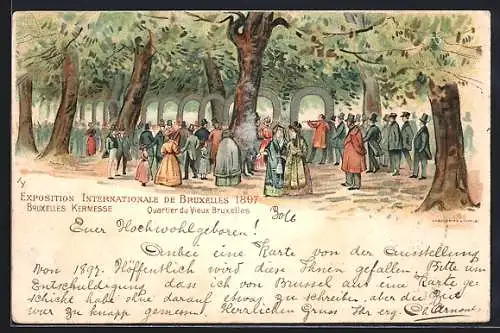 EXPOSITION INTERNATIONALE DE BRUXELLES 1897
BRUXELLES KERMESSE
Quartier du Vieux Bruxelles
Euer Hochwohlgeboren!
Anbei eine Karte von der Ausstellung
von 1897. Hoffentlich wird diese Ihnen gefallen. Bitte um
Entschuldigung dass ich von Brüssel aus eine Karte ge-
schickt habe ohne darauf etwas zu schreiben, aber die Zeit
war zu knapp gemessen. Herzlichen Gruss Ihr erg.